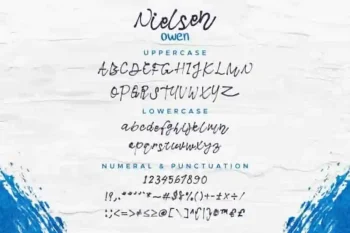 Nielsen
owen
UPPERCASE
ABCDEFGHIJKLMN
OPQRSTUVWXYZ
LOWERCASE
abcdefghijklmn
opqrstuvwxyz
NUMERAL & PUNCTUATION
1234567890